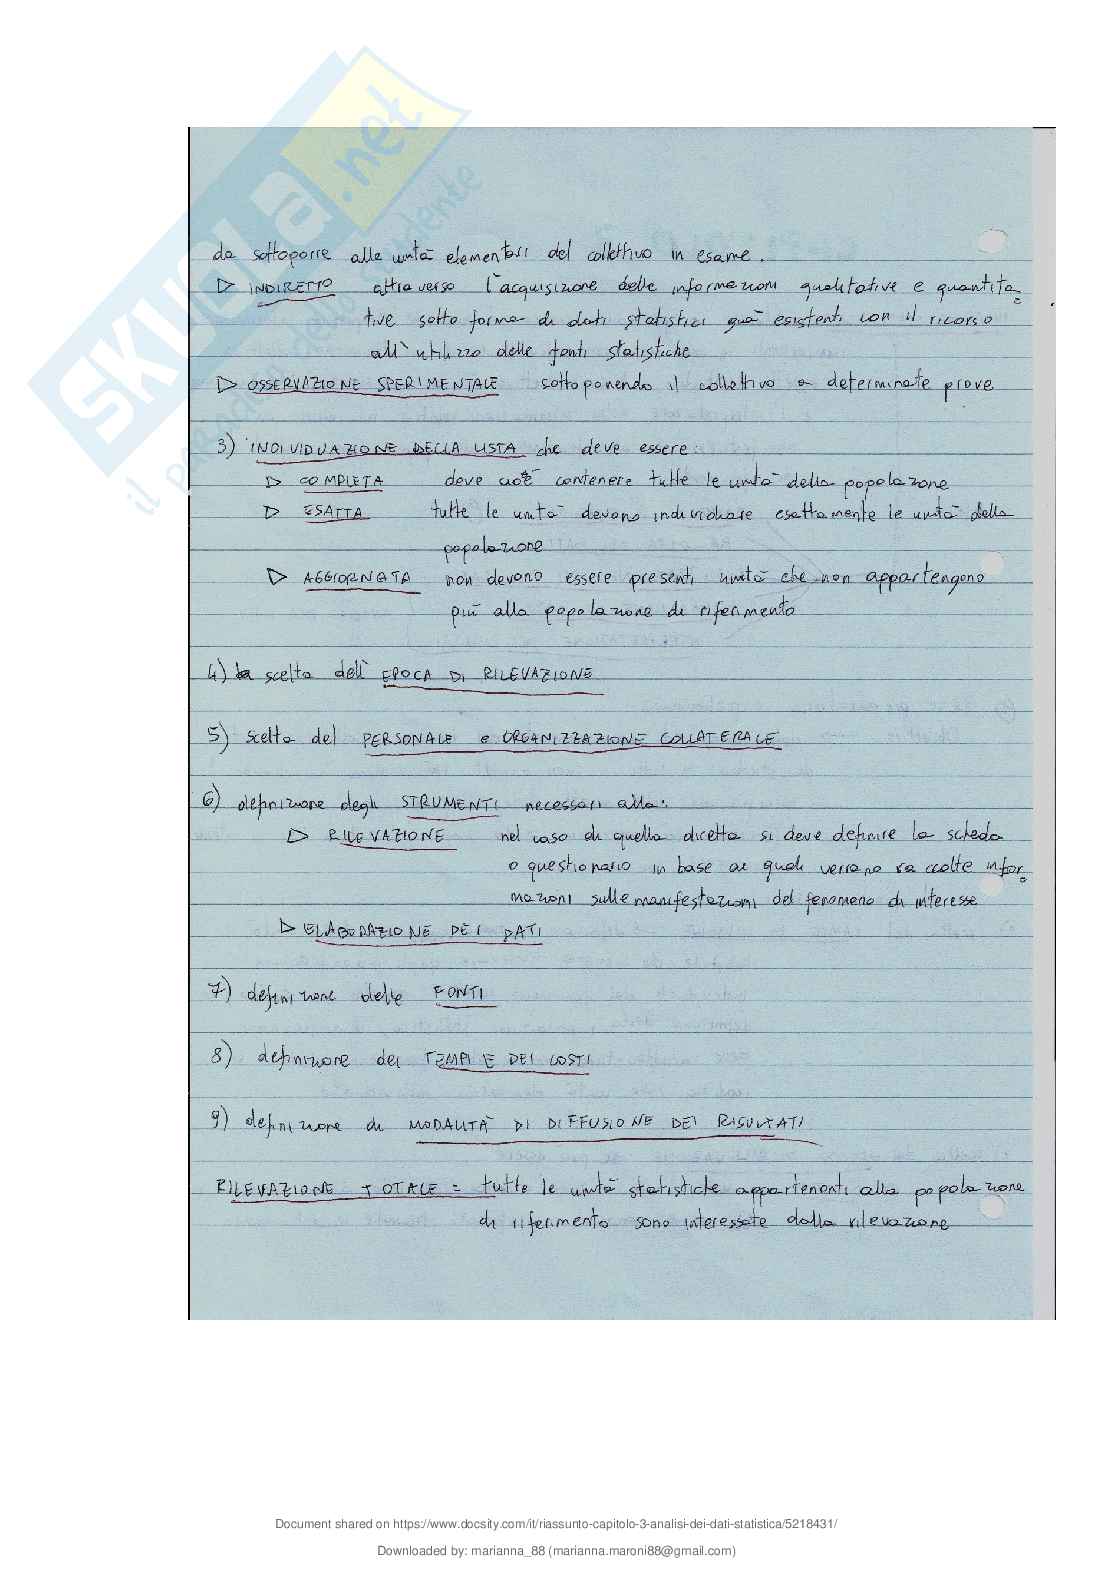 SKUOLA.net
il paradiso dello studente
da sottoporre alle unità elementari del collettivo in esame.
▷ INDIRETTO attraverso l'acquisizione delle informazioni qualitative e quantita-
tive sotto forma di dati statistici già esistenti con il ricorso
all'utilizzo delle fonti statistiche
▷ OSSERVAZIONE SPERIMENTALE sottoponendo il collettivo a determinate prove
3) INDIVIDUAZIONE DELLA LISTA che deve essere:
▷ COMPLETA deve cioè contenere tutte le unità della popolazione
▷ ESATTA tutte le unità devono individuare esattamente le unità della
popolazione
▷ AGGIORNATA non devono essere presenti unità che non appartengono
più alla popolazione di riferimento
4) la scelta dell'EPOCA DI RILEVAZIONE
5) scelta del PERSONALE e ORGANIZZAZIONE COLLATERALE
6) definizione degli STRUMENTI necessari alla:
▷ RILEVAZIONE nel caso di quella diretta si deve definire la scheda
o questionario in base ai quali verrano raccolte infor-
mazioni sulle manifestazioni del fenomeno di interesse
▷ ELABORAZIONE DEI DATI
7) definizione delle FONTI
8) definizione dei TEMPI E DEI COSTI
9) definizione di MODALITÀ DI DIFFUSIONE DEI RISULTATI
RILEVAZIONE TOTALE = tutte le unità statistiche appartenenti alla popolazione
di riferimento sono interessate dalla rilevazione
Document shared on https://www.docsity.com/it/riassunto-capitolo-3-analisi-dei-dati-statistica/5218431/
Downloaded by: marianna_88 (marianna.maroni88@gmail.com)